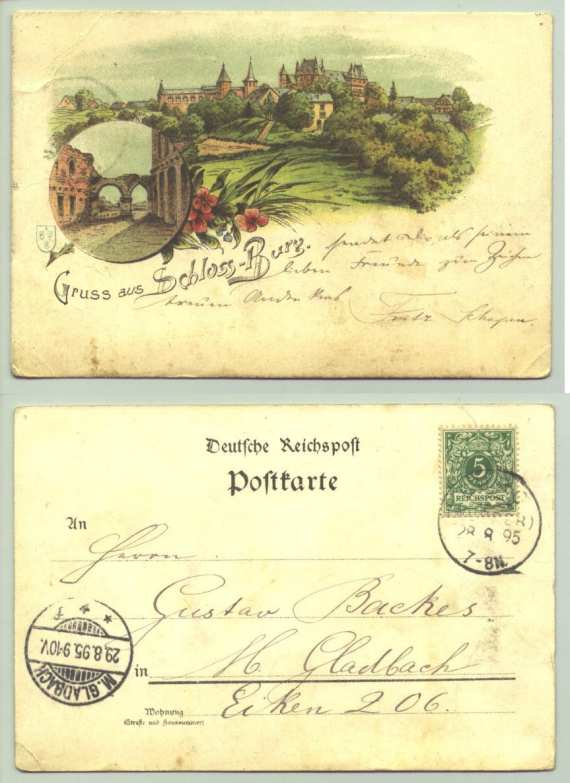 Gruss aus Schloss-Burg.
sendet Dir als seinem
lieben Freunde zum Zeichen
treuen Andenkens
Fritz
Deutsche Reichspost
Postkarte
5
REICHSPOST
An
Herrn
28 8 95
7-8N.
Gustav Backes
M. GLADBACH
29.8.95.9-10V.
in M. Gladbach
Wohnung
(Straße und Hausnummer)
Eiken 206.